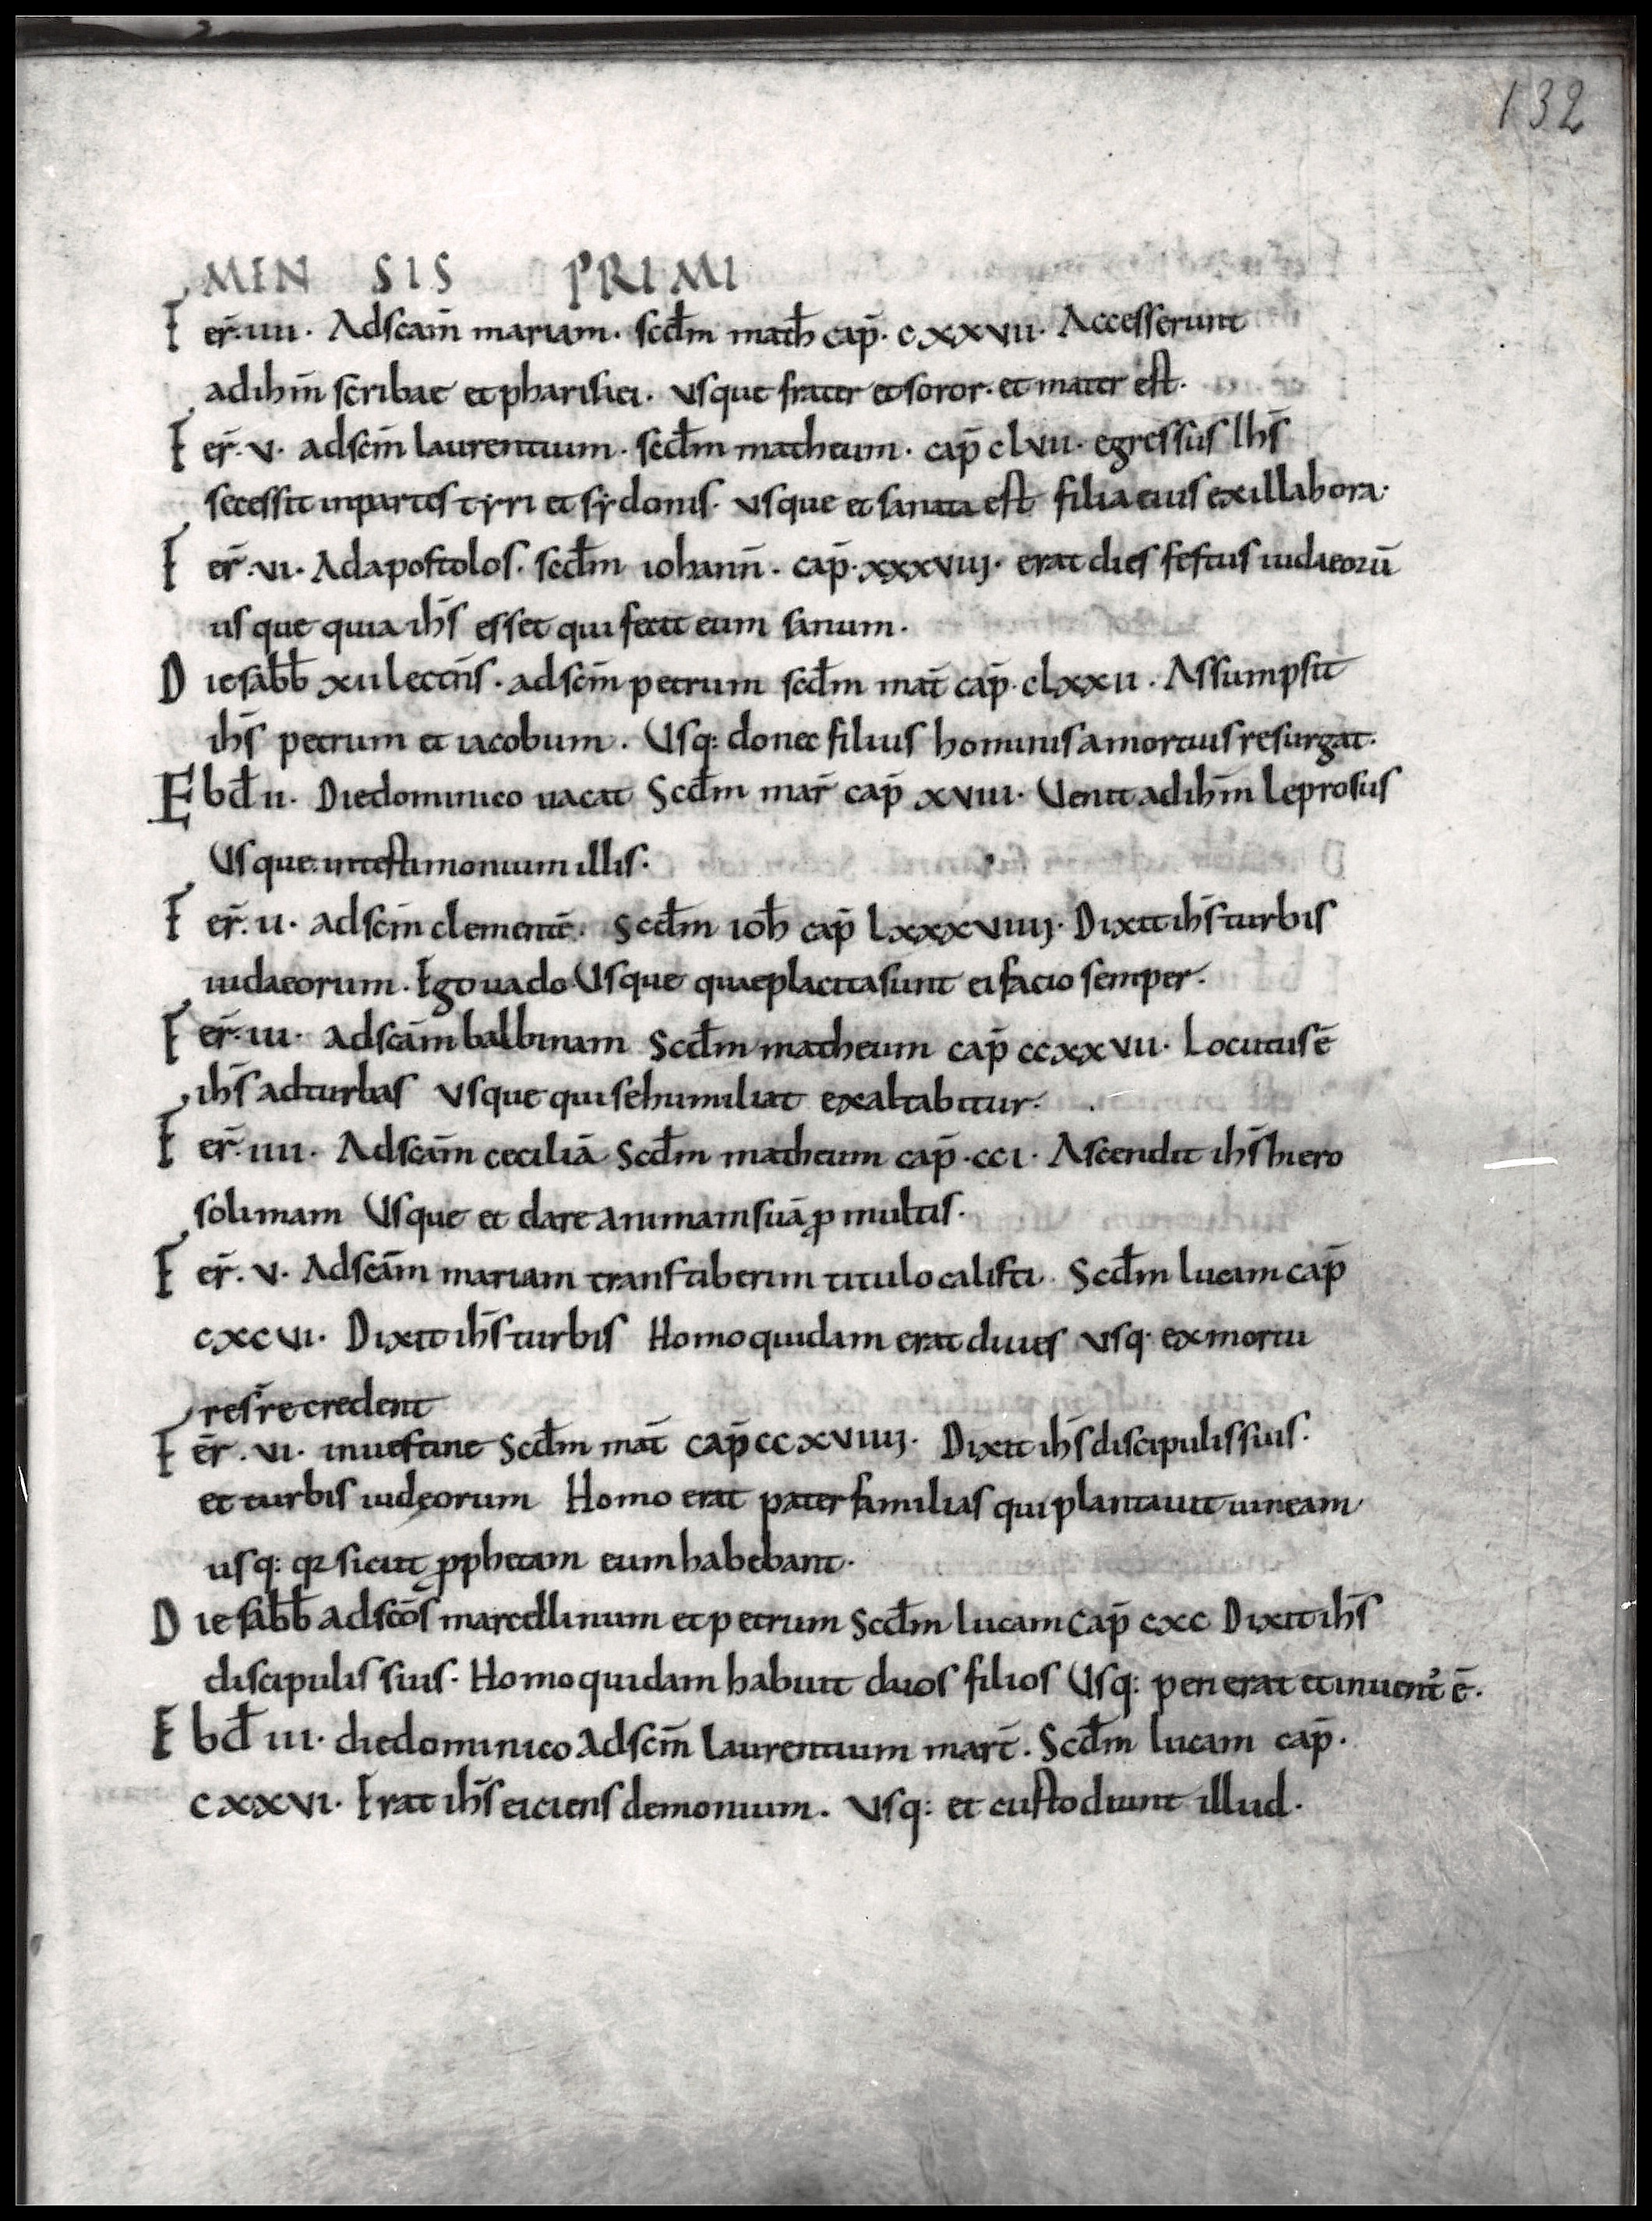 132
MEN SIS PRIMI
Fer̄. IIII. Ad scam̄ mariam. scd̄m math̄ cap̄. CXXVII. Accesserunt
ad ihm̄ scribae et pharisaei. Vsque frater et soror. et mater est.
Fer̄. V. ad scm̄ laurentium. scd̄m matheum. cap̄ CLVII. egressus Ihs̄
secessit in partes tyri et sydonis. Vsque et sanata est filia eius ex illa hora.
Fer̄. VI. Ad apostolos. scd̄m iohann̄. cap̄. XXXVIIJ. erat dies festus iudaeorū
usque quia ihs̄ esset qui fecit eum sanum.
Die sabb̄ XII lectn̄s. ad scm̄ petrum scd̄m mat̄ cap̄. CLXXII. Assumpsit
ihs̄ petrum et iacobum. Usq: donec filius hominis a mortuis resurgat.
Ebd̄ II. Die dominico uacat Scd̄m mar̄ cap̄ XVIII. Uenit ad ihm̄ leprosus
Usque in testimonium illis.
Fer̄. II. ad scm̄ clementē. Scd̄m ioh̄ cap̄ LXXXVIIIJ. Dixit ihs̄ turbis
iudaeorum. Ego uado Usque quae placita sunt ei facio semper.
Fer̄. III. Ad scām balbinam Scd̄m matheum cap̄ CCXXVII. Locutus ē
ihs̄ ad turbas Vsque qui se humiliat exaltabitur.
Fer̄. IIII. Ad scām ceciliā Scd̄m matheum cap̄. CCI. Ascendit ihs̄ hiero
solimam Usque et dare animam suā ꝓ multis.
Fer̄. V. Ad scām mariam transtiberim titulo calisti. Scd̄m lucam cap̄
CXCVI. Dixit ihs̄ turbis Homo quidam erat diues Vsq. ex mortu
resr̄re credent
Fer̄. VI. in uestine Scd̄m mat̄ cap̄ CCXVIIIJ. Dixit ihs̄ discipulis suis.
et turbis iudęorum Homo erat pater familias qui plantauit uineam
usq: qꝛ sicut ꝓphetam eum habebant.
Die sabb̄ ad scōs marcellinum et petrum Scd̄m lucam Cap̄ CXC Dixit ihs̄
discipulis suis. Homo quidam habuit duos filios Usq: perierat et inuent᾽ ē.
Ebd̄ III. die dominico Ad scm̄ laurentium mart̄. Scd̄m lucam cap̄.
CXXVI. Erat ihs̄ eiciens demonium. Vsq: et custodiunt illud.